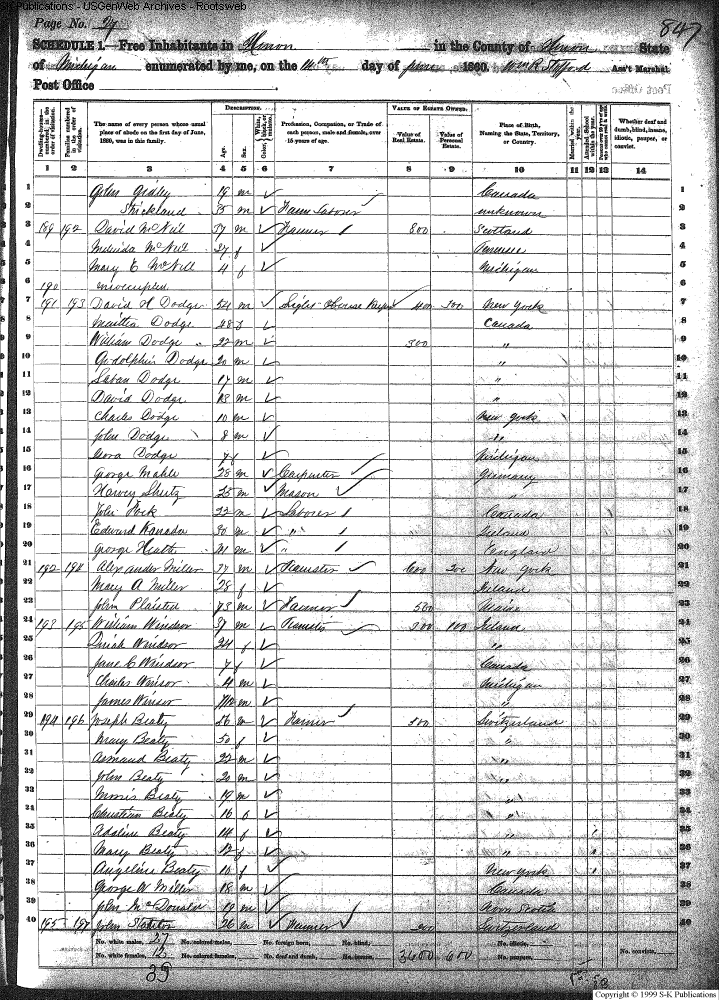 S-K Publications - USGenWeb Archives - Rootsweb
847
Page No. 24
SCHEDULE 1.—Free Inhabitants in Huron in the County of Huron State
of Michigan enumerated by me, on the 14th day of June 1860. Wm R Stafford Ass't Marshal.
Post Office
Dwelling-houses—numbered in the order of visitation.
Families numbered in the order of visitation.
The name of every person whose usual place of abode on the first day of June, 1860, was in this family.
DESCRIPTION.
Age.
Sex.
Color, White, black, or mulatto.
Profession, Occupation, or Trade of each person, male and female, over 15 years of age.
VALUE OF ESTATE OWNED.
Value of Real Estate.
Value of Personal Estate.
Place of Birth, Naming the State, Territory, or Country.
Married within the year.
Attended School within the year.
Whether deaf and dumb, blind, insane, idiotic, pauper, or convict.
1 2 3 4 5 6 7 8 9 10 11 12 13 14
1 19 m Canada 1
2 Strickland 35 m Farm Laborer unknown 2
3 189 192 David McNeil 37 m Farmer 800 Scotland 3
4 Melinda McNeil 27 f 4
5 Mary E McNeil 4 f Michigan 5
6 190 unoccupied 6
7 191 193 David H Dodge 54 m Light House Keeper 400 300 New York 7
8 Dodge 48 Canada 8
9 William Dodge 22 m 300 " 9
10 Godolphin Dodge 20 m " 10
11 Laban Dodge 17 m " 11
12 David Dodge 13 m " 12
13 Charles Dodge 10 m New York 13
14 John Dodge 8 m " 14
15 Cora Dodge 4 f Michigan 15
16 George Mahle 28 m Carpenter Germany 16
17 Harvey 25 m Mason " 17
18 John 22 m Laborer Canada 18
19 Edward 30 m " Ireland 19
20 George Heath m " England 20
21 192 194 Alexander Miller 37 m Teamster 600 200 New York 21
22 Mary A Miller 28 f Ireland 22
23 John Plaisted 43 m Farmer 500 Maine 23
24 193 195 William Windsor 37 m 300 100 Ireland 24
25 Windsor 24 f " 25
26 Jane C Windsor 7 f Canada 26
27 Charles Winsor 4 m Michigan 27
28 James Winsor m " 28
29 194 196 Joseph Beaty 56 m Farmer 300 Switzerland 29
30 Mary Beaty 50 f " 30
31 Armand Beaty 22 m " 31
32 John Beaty 20 m " 32
33 Morris Beaty 19 m " 33
34 Christian Beaty 16 " 34
35 Adaline Beaty 14 f " 35
36 Mary Beaty 12 f " 36
37 Angeline Beaty 10 f New York 37
38 George W Miller 18 m Canada 38
39 John McDonald 19 m Nova Scotia 39
40 195 197 John 26 m Farmer 200 Switzerland 40
No. white males, 27 No. colored males, No. foreign born, No. blind, No. idiotic,
No. white females, 12 No. colored females, No. deaf and dumb, No. insane, 3600 600 No. paupers, No. convicts,
39
Copyright © 1999 S-K Publications